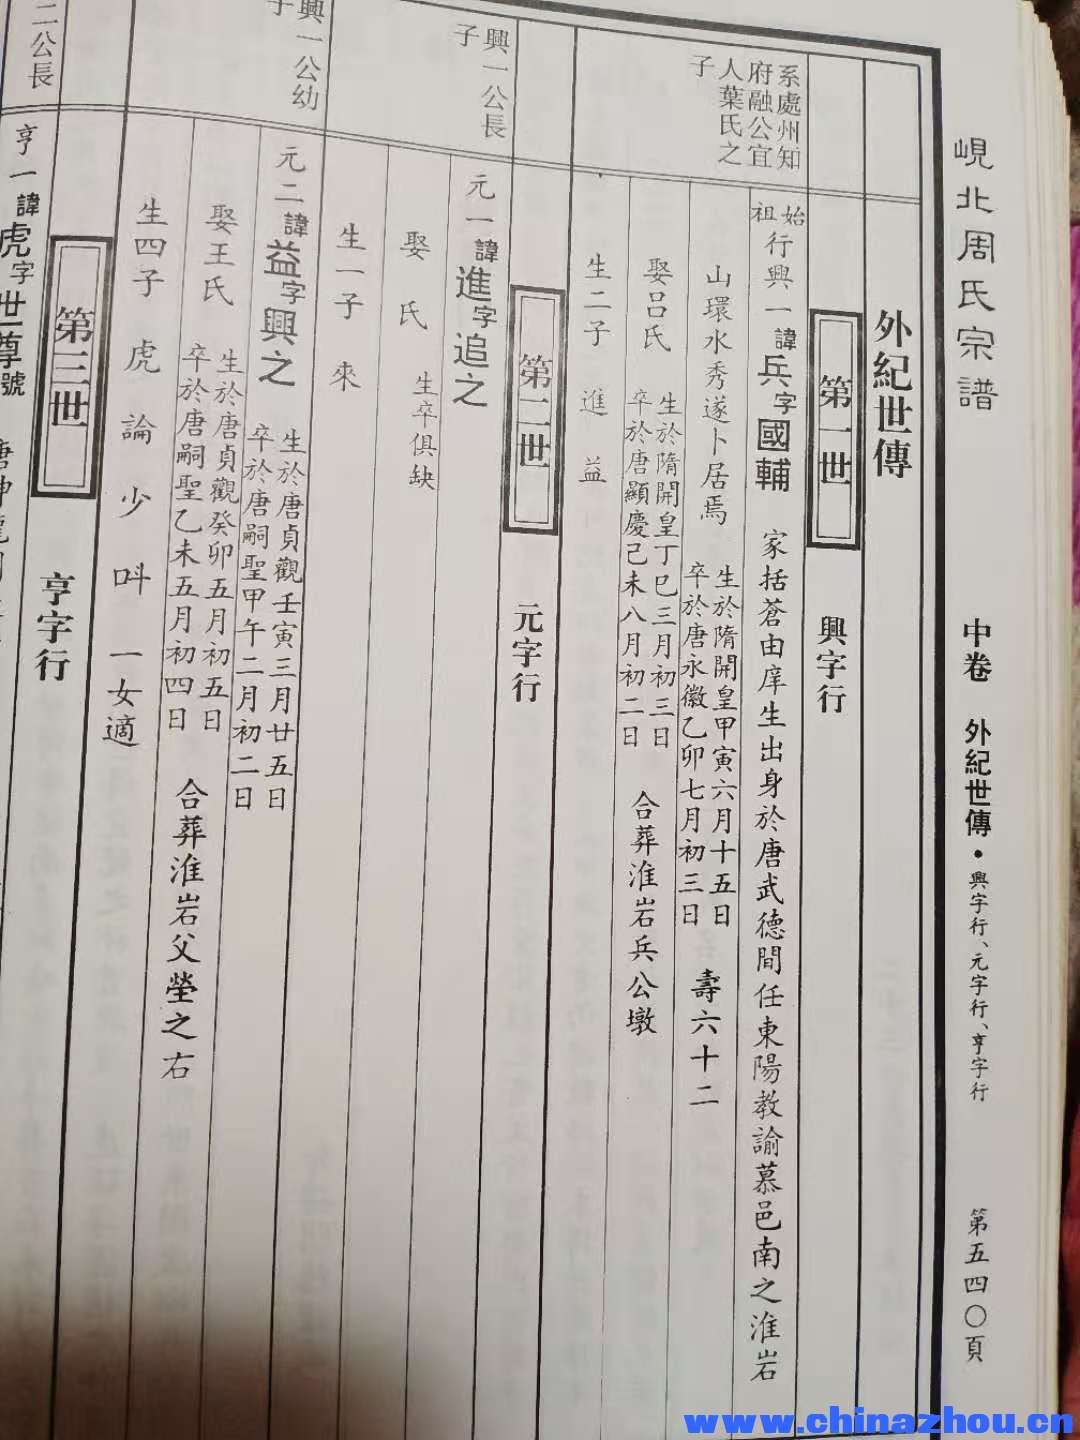 峴北周氏宗譜
中卷 外紀世傳·興字行、元字行、亨字行
第五四〇頁
外紀世傳
第一世 興字行
系處州知
府融公宜
人葉氏之
子
始祖行興一諱兵字國輔 家括蒼由庠生出身於唐武德間任東陽教諭慕邑南之淮岩
山環水秀遂卜居焉
生於隋開皇甲寅六月十五日
卒於唐永徽乙卯七月初三日
壽六十二
娶呂氏
生於隋開皇丁巳三月初三日
卒於唐顯慶己未八月初二日
合葬淮岩兵公墩
生二子 進 益
第二世 元字行
興一公長
子
元一諱進字追之
娶 氏 生卒俱缺
生一子 來
興一公幼
子
元二諱益字興之
生於唐貞觀壬寅三月廿五日
卒於唐嗣聖甲午二月初二日
娶王氏
生於唐貞觀癸卯五月初五日
卒於唐嗣聖乙未五月初四日
合葬淮岩父塋之右
生四子 虎 論 少 呌 一女適
第三世 亨字行
二公長
亨一諱虎字世尊號